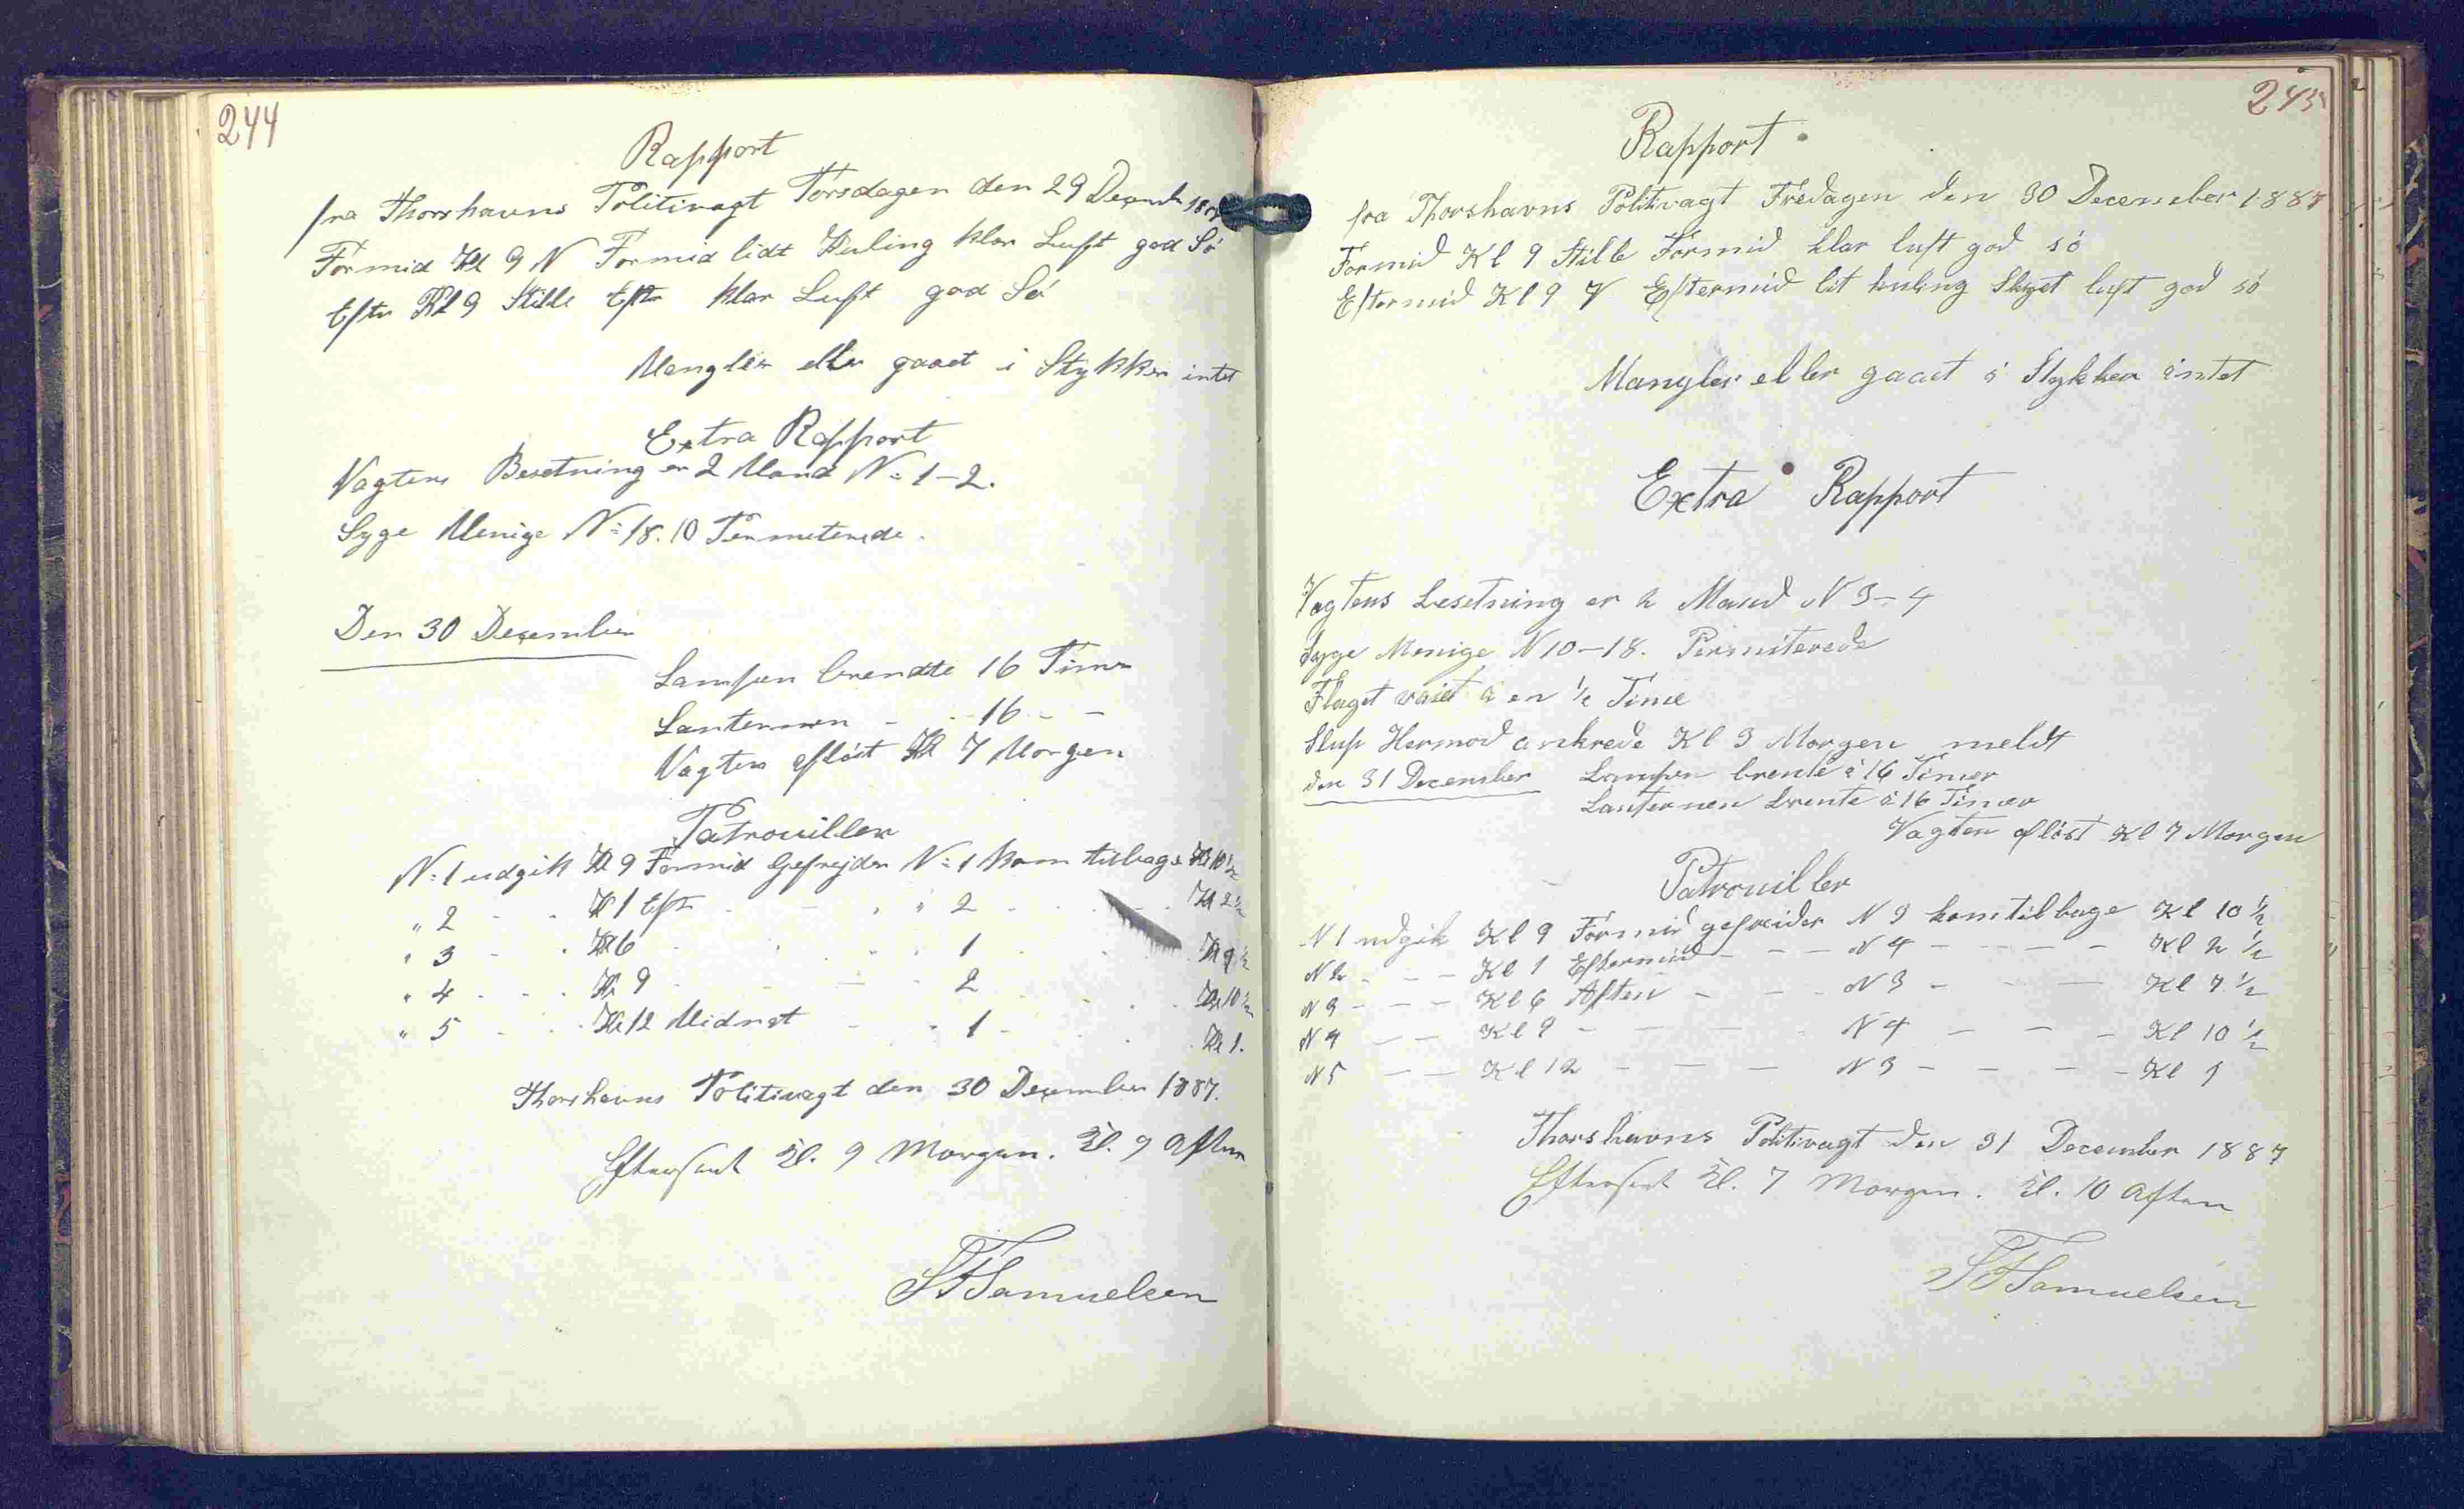 244
Rapport
fra Thorshavns Politivagt Torsdagen den 29 Decemb 1887
Formid Kl 9 N Formid lidt Kuling klar Luft god Sö
Eftr Kl 9 Stille Eftr klar Luft god Sö
Mangler eller gaaet i Stykker intet
Extra Rapport
Vagtens Besetning er 2 Mand N: 1-2.
Syge Menige N: 18. 10 Permeterede.
Den 30 December
Lampen brendte 16 Timer
Lanternen - - 16 - -
Vagten aflöst Kl 7 Morgen
Patrouiller
N: 1 udgik Kl 9 Formid Gefrejder N: 1 kom tilbage Kl 10 1/2
" 2 - - Kl 1 Eft - - " " 2 - - - Kl 2 1/2
" 3 - - Kl 6 - - - 1 - - Kl 7 1/2
" 4 - - Kl 9 - - - 2 - - Kl 10 1/2
" 5 - - Kl 12 Midnat - - 1 - - Kl 1.
Thorshavns Politivagt den 30 December 1887.
Efterseet Kl. 9 Morgen. Kl. 9 Aften
Samuelsen
245
Rapport
fra Thorshavns Politivagt Fredagen den 30 Decemeber 1887
Formid Kl 9 Stille Formid klar luft god sö
Eftermid Kl 9 V Eftermid lit kuling Skyet luft god sö
Mangler eller gaaet i Stykker intet
Extra Rapport
Vagtens besetning er 2 Mand N 3-4
Syge Menige N 10-18. Permiterede
Flaget vaiet a en 1/2 Time
Slup Hermod ankrede Kl 3 Morgen meldt
den 31 December Lampen brente á 16 Timer
Lanternen brente á 16 Timer
Vagten aflöst Kl 7 Morgen
Patrouiller
N 1 udgik Kl 9 Formid gefreider N 3 kom tilbage Kl 10 1/2
N 2 - - - Kl 1 Eftermid - - - N 4 - - - - Kl 2 1/2
N 3 - - - Kl 6 Aften - - - N 3 - - - Kl 7 1/2
N 4 - - Kl 9 - - - - N 4 - - - Kl 10 1/2
N 5 - - Kl 12 - - - N 3 - - - - Kl 1
Thorshavns Politivagt den 31 December 1887
Efterseet Kl. 7 Morgen. Kl. 10 Aften
Samuelsen